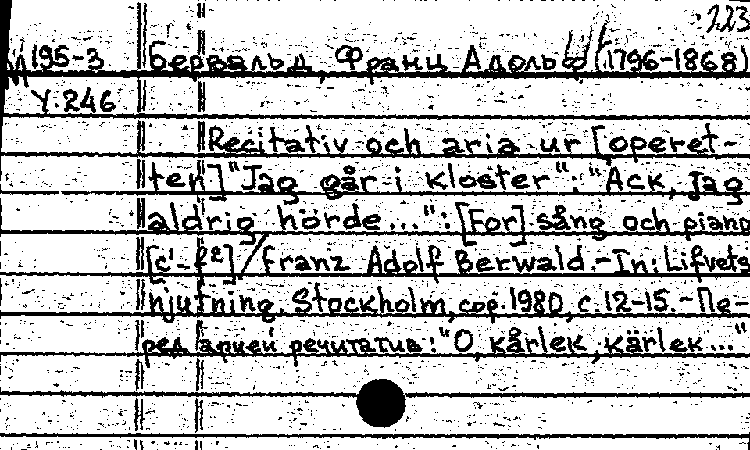 223
М 195-3 Бервальд, Франц Адольф (1796-1868)
Y.246
Recitativ och aria ur [operet-
ten] "Jag går i kloster": "Ack, jag
aldrig hörde...": [For] sång och piano
[c¹-f²] / Franz Adolf Berwald.-In: Lifvets
njutning. Stockholm, cop. 1980, с. 12-15.-Пе-
ред арией речитатив: "O, kårlek, kärlek..."